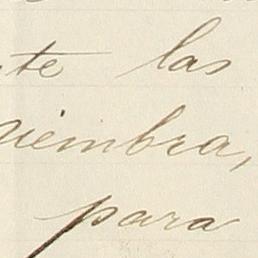 te las
siembra,
para